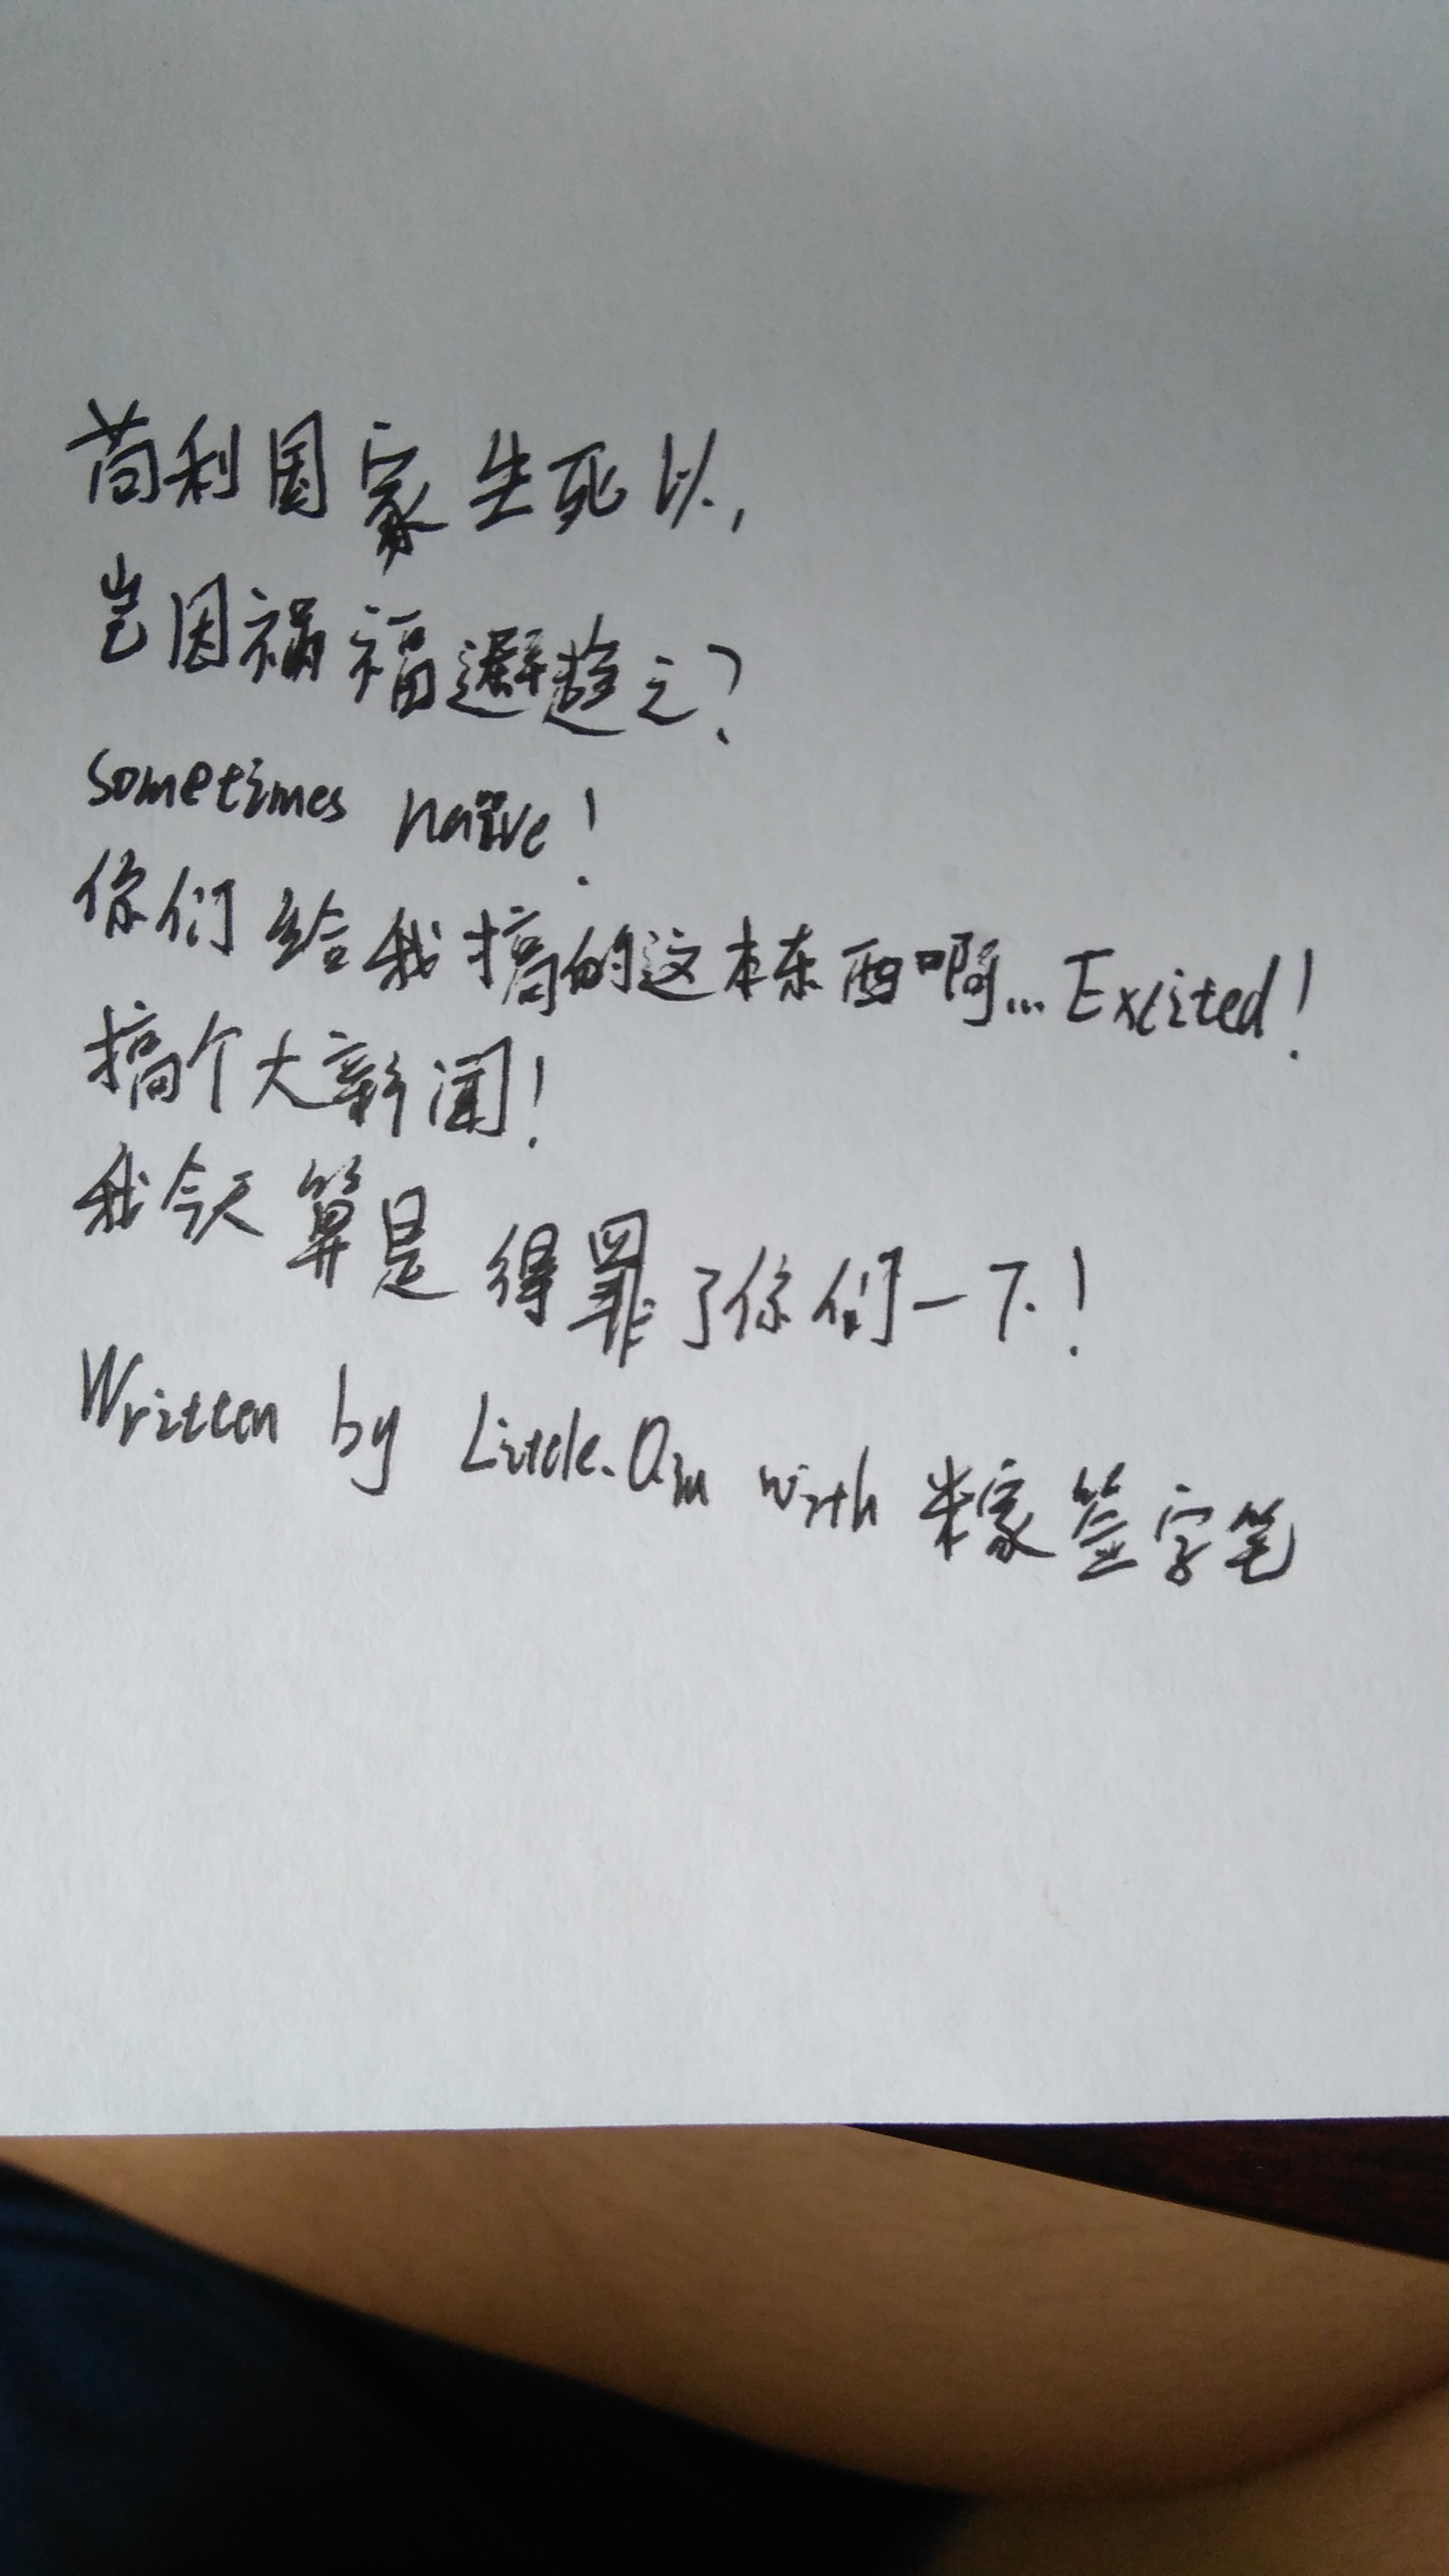 苟利国家生死以,
岂因祸福避趋之?
sometimes naïve!
你们给我搞的这本东西啊...Excited!
搞个大新闻!
我今天算是得罪了你们一下!
Written by Little. with 米家签字笔